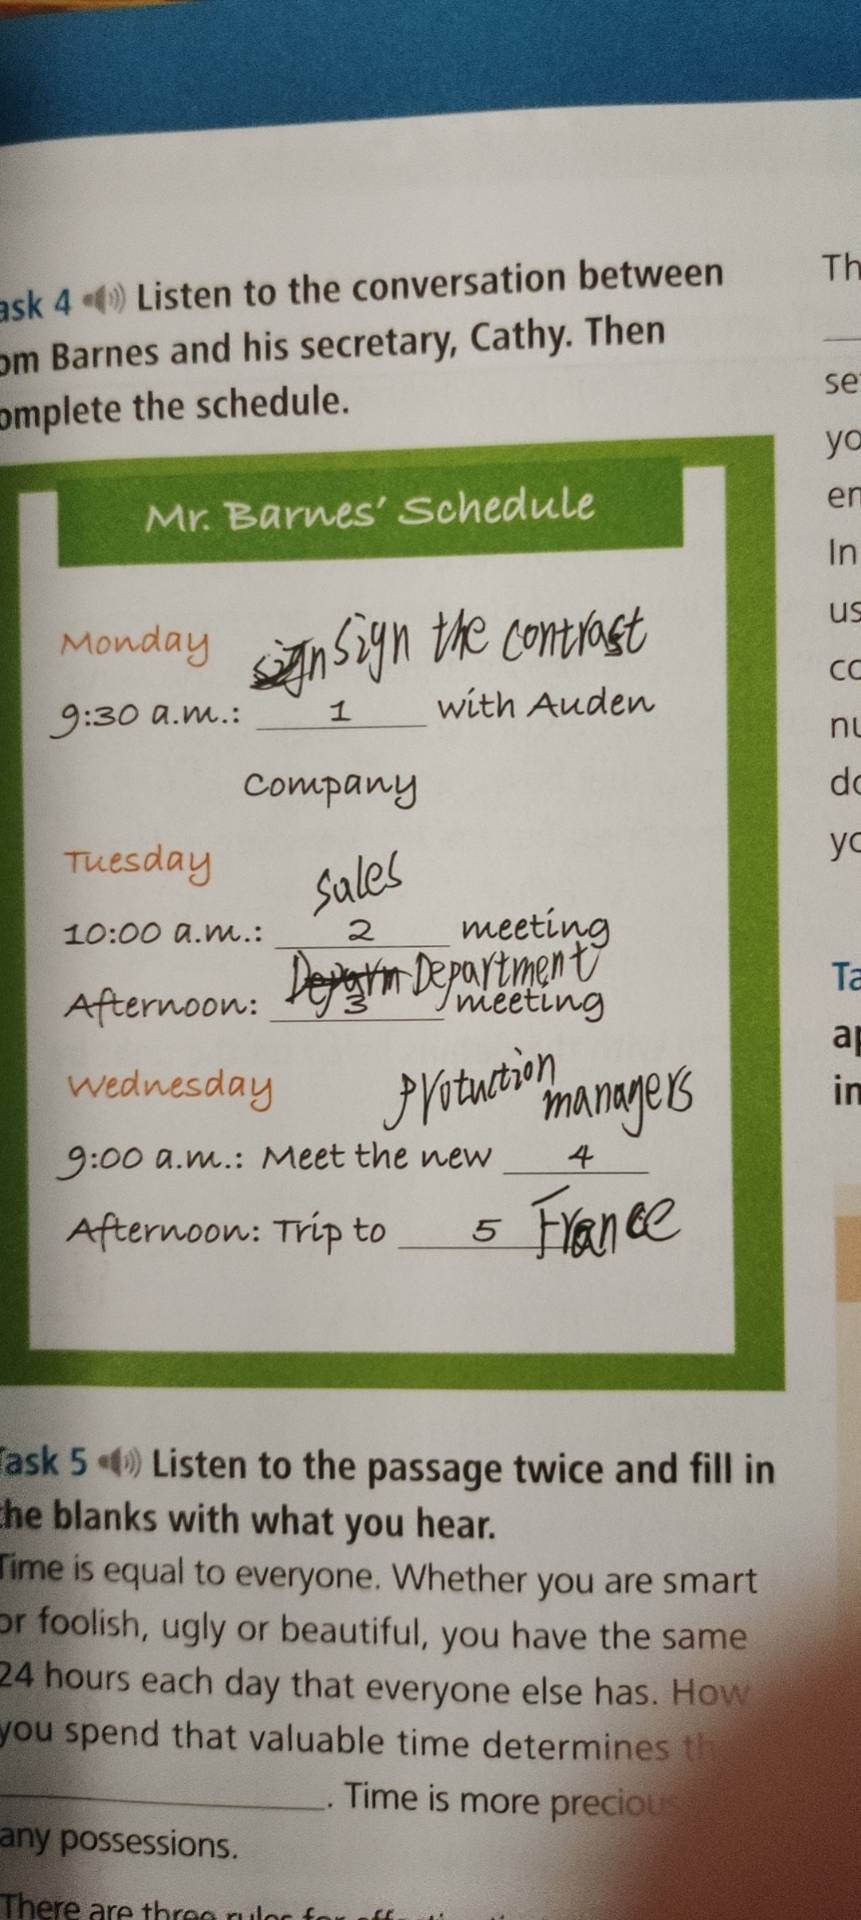 ask 4 Listen to the conversation between
om Barnes and his secretary, Cathy. Then
omplete the schedule.
Mr. Barnes' Schedule
Monday
sign Sign the contrast
9:30 a.m.: 1 with Auden
Company
Tuesday
Sales
10:00 a.m.: 2 meeting
Department
Afternoon: 3 meeting
Wednesday
protuction
managers
9:00 a.m.: Meet the new 4
Afternoon: Trip to 5 France
Task 5 Listen to the passage twice and fill in
the blanks with what you hear.
Time is equal to everyone. Whether you are smart
or foolish, ugly or beautiful, you have the same
24 hours each day that everyone else has. How
you spend that valuable time determines th
. Time is more precious
any possessions.
There are three rules for
Th
se
yo
en
In
us
co
nu
do
yo
Ta
ap
in